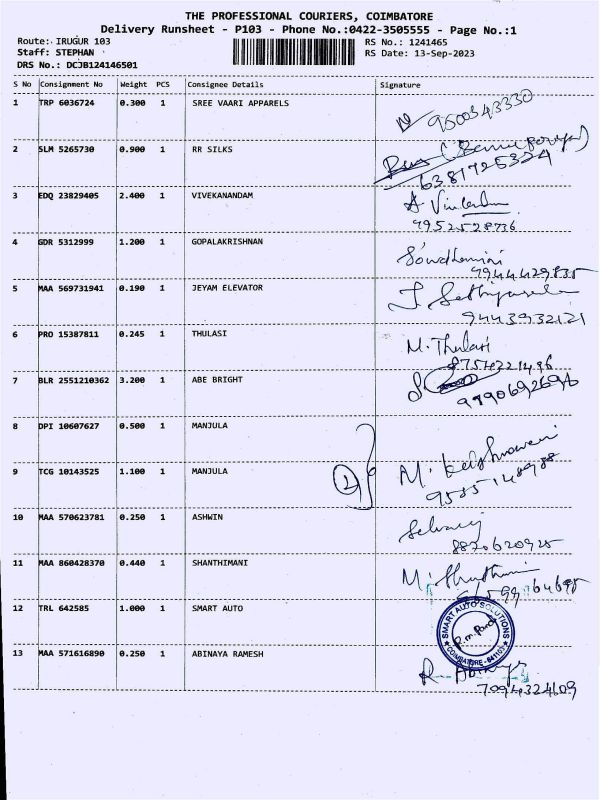 THE PROFESSIONAL COURIERS, COIMBATORE
Delivery Runsheet - P103 - Phone No.:0422-3505555 - Page No.:1
Route: IRUGUR 103 RS No.: 1241465
Staff: STEPHAN RS Date: 13-Sep-2023
DRS No.: DCJB124146501
S No Consignment No Weight PCS Consignee Details Signature
1 TRP 6036724 0.300 1 SREE VAARI APPARELS
9500343330
2 SLM 5265730 0.900 1 RR SILKS
6381725324
3 EDQ 23829405 2.400 1 VIVEKANANDAM
9952528736
4 GDR 5312999 1.200 1 GOPALAKRISHNAN
Sowdhamini
9944429835
5 MAA 569731941 0.190 1 JEYAM ELEVATOR
9443932121
6 PRO 15387811 0.245 1 THULASI
M. Thulasi
8754221496
7 BLR 2551210362 3.200 1 ABE BRIGHT
9990692696
8 DPI 10607627 0.500 1 MANJULA
9 TCG 10143525 1.100 1 MANJULA
2 M.
9585148988
10 MAA 570623781 0.250 1 ASHWIN
Selvaraj
8870620925
11 MAA 860428370 0.440 1 SHANTHIMANI
12 TRL 642585 1.000 1 SMART AUTO
SMART AUTO SOLUTIONS
COIMBATORE - 641103
13 MAA 571616890 0.250 1 ABINAYA RAMESH
R. Abinaya
7094324609